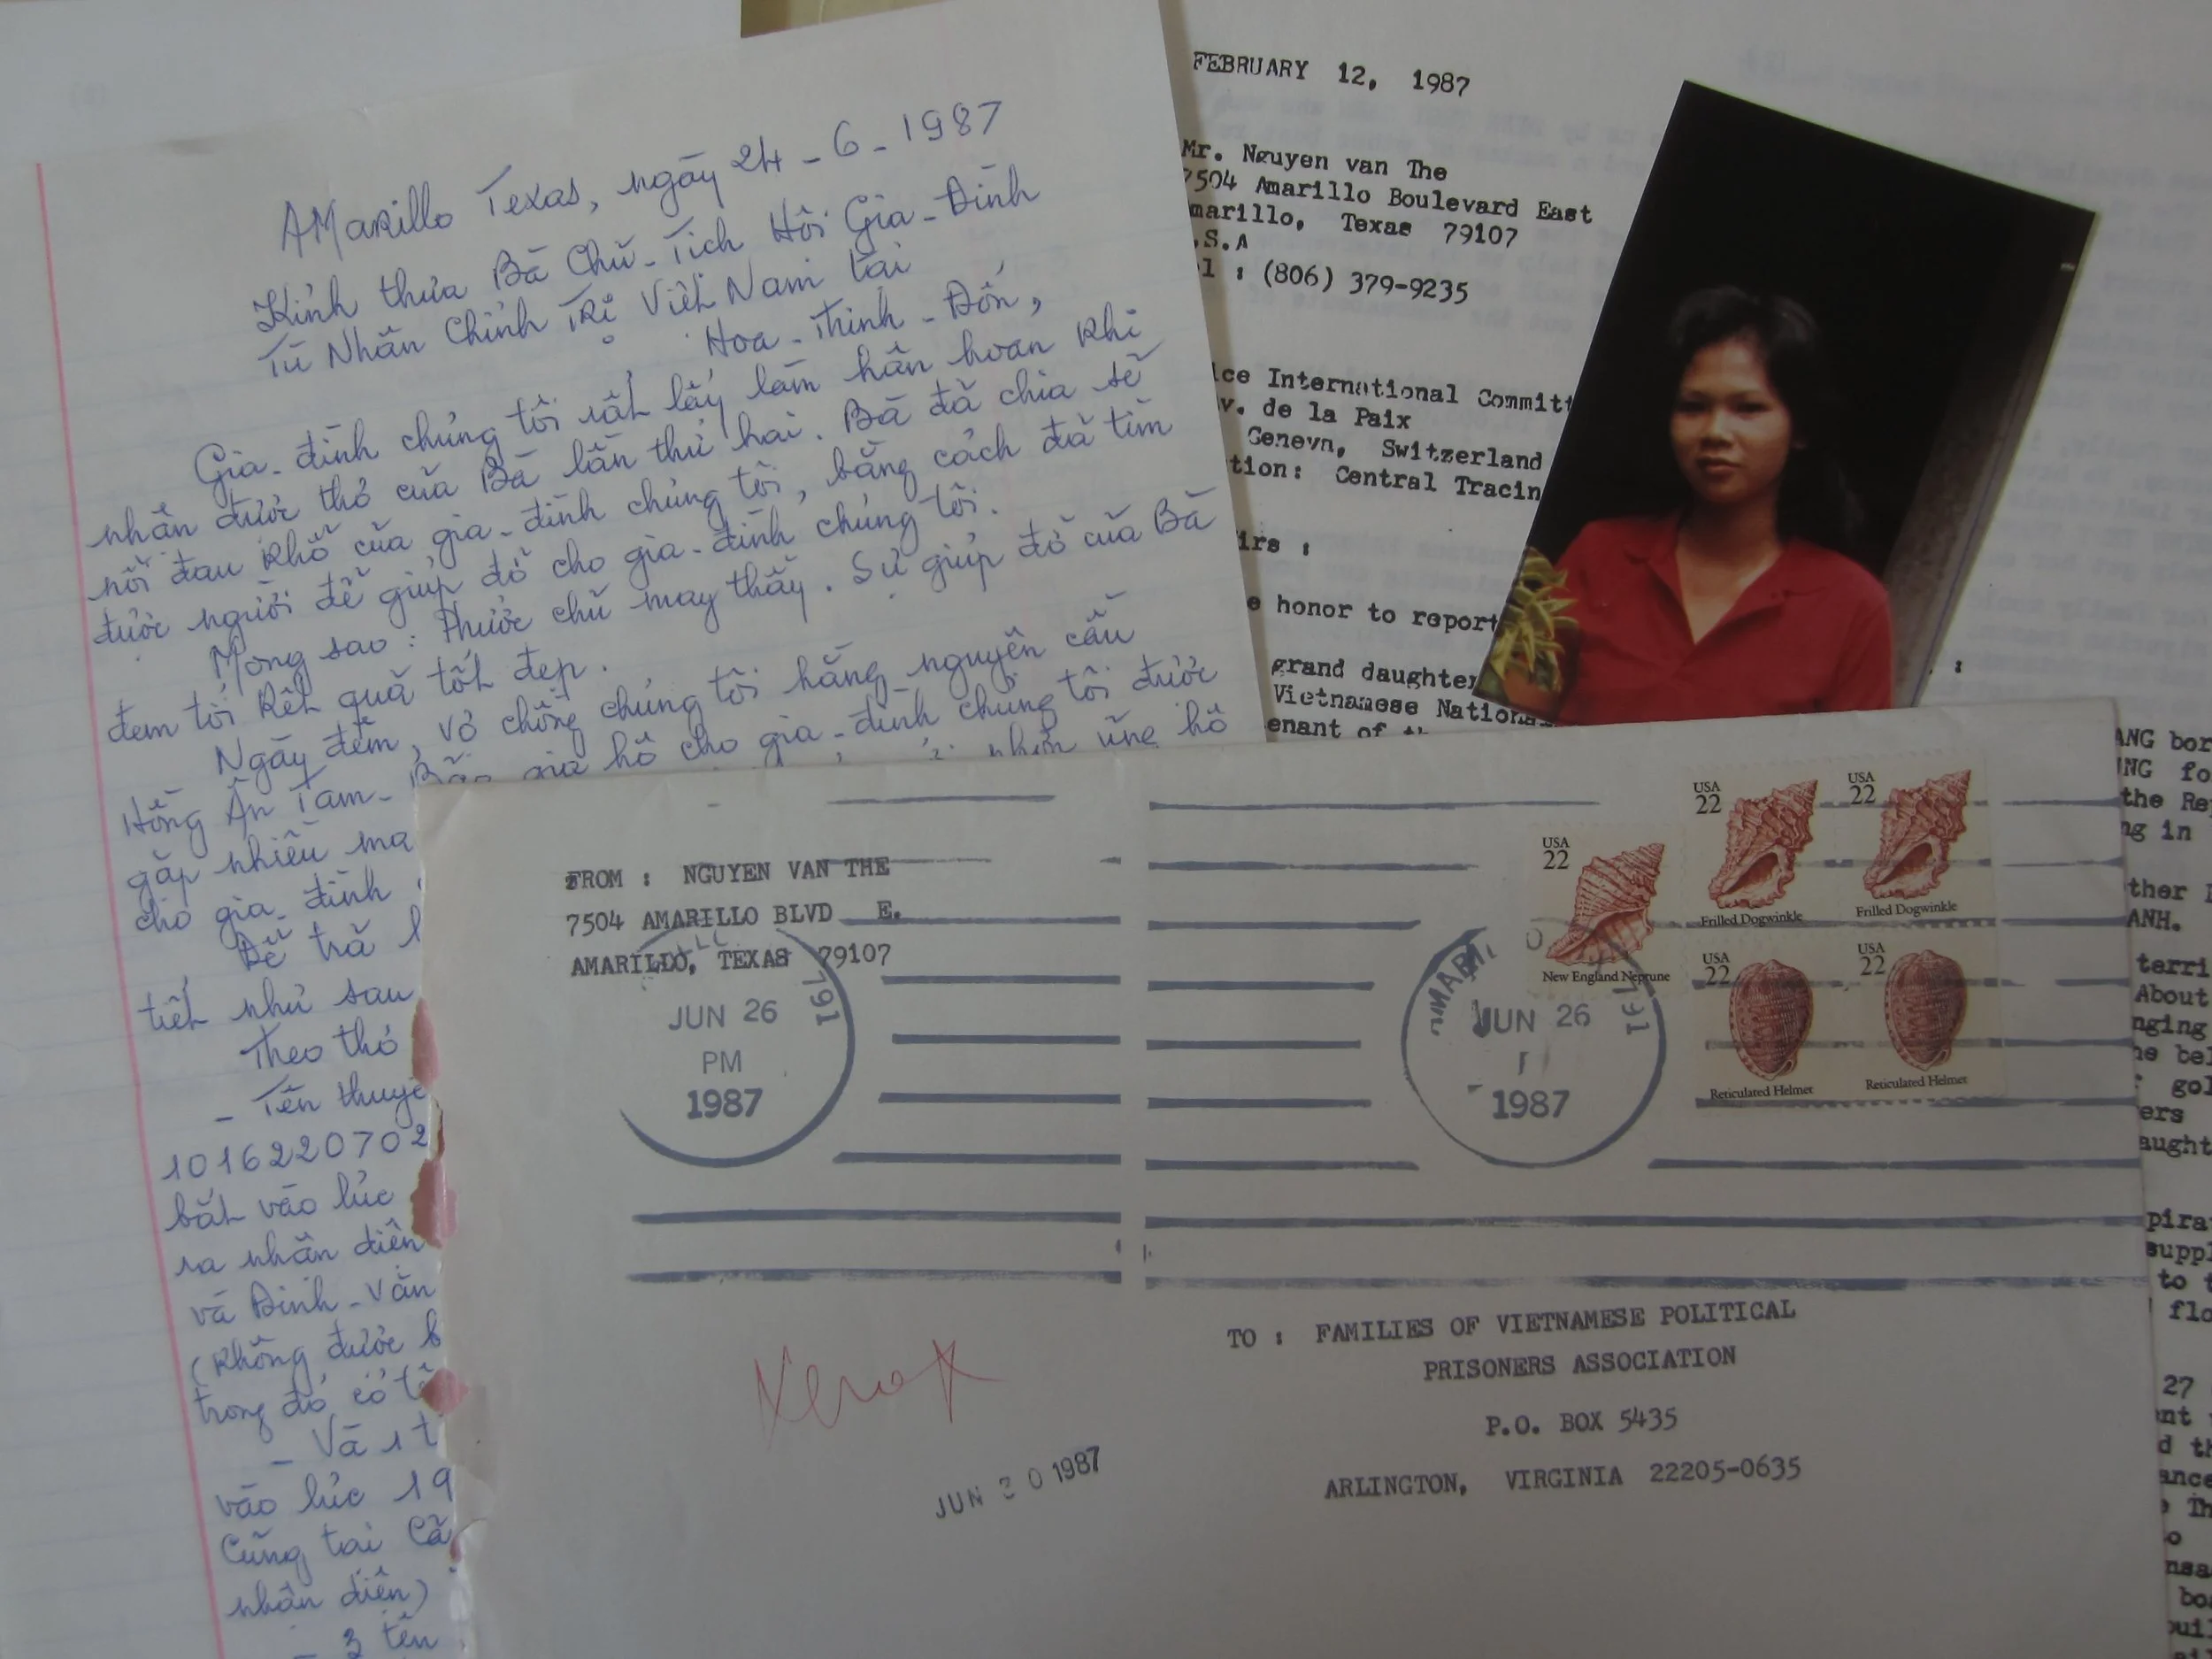 AMarillo Texas, ngày 24-6-1987
Kính thưa Bà Chủ-Tịch Hội Gia-Đình
Tù Nhân Chính Trị Việt Nam tại
Hoa-Thịnh-Đốn,
Gia-đình chúng tôi rất lấy làm hân hoan khi
nhận được thơ của Bà lần thứ hai. Bà đã chia sẽ
nỗi đau khổ của gia-đình chúng tôi, bằng cách đã tìm
được người để giúp đỡ cho gia-đình chúng tôi.
Mong sao: Phước chủ may thầy. Sự giúp đỡ của Bà
đem tới kết quả tốt đẹp.
Ngày đêm, vợ chồng chúng tôi hằng nguyện cầu
Hồng Ân Tam-
gia hộ cho gia-đình chúng tôi được
gặp nhiều ma
cho gia đình
Để trả l
tiết như sau
Theo thơ
- Tên thuyề
1016220702
bắt vào lúc
ra nhận diện
và Đinh-Văn
(không được b
trong đó có t
- Và 1 t
vào lúc 19
Cũng tại Cả
nhận diện)
- 3 tên
FEBRUARY 12, 1987
Mr. Nguyen van The
7504 Amarillo Boulevard East
marillo, Texas 79107
.S.A
l : (806) 379-9235
ice International Committ
v. de la Paix
Geneva, Switzerland
tion: Central Tracin
irs :
e honor to report
grand daughter
Vietnamese Nationa
enant of th
:
ANG bor
NG fo
the Re
ng in
ther
ANH.
terri
About
nging
he bel
gol
ers
aught
pira
suppl
to t
flo
27
nt
d th
ance
Th
o
nsa
boa
uil
FROM : NGUYEN VAN THE
7504 AMARILLO BLVD E.
AMARILLO, TEXAS 79107
791
JUN 26
PM
1987
AMARI
791
JUN 26
1987
USA
22
New England Neptune
USA
22
Frilled Dogwinkle
USA
22
Frilled Dogwinkle
USA
22
Reticulated Helmet
USA
22
Reticulated Helmet
Xerox
JUN 30 1987
TO : FAMILIES OF VIETNAMESE POLITICAL
PRISONERS ASSOCIATION
P.O. BOX 5435
ARLINGTON, VIRGINIA 22205-0635